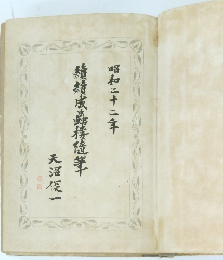 昭和二十二年
續續成蹊樓隨筆
天沼俊一